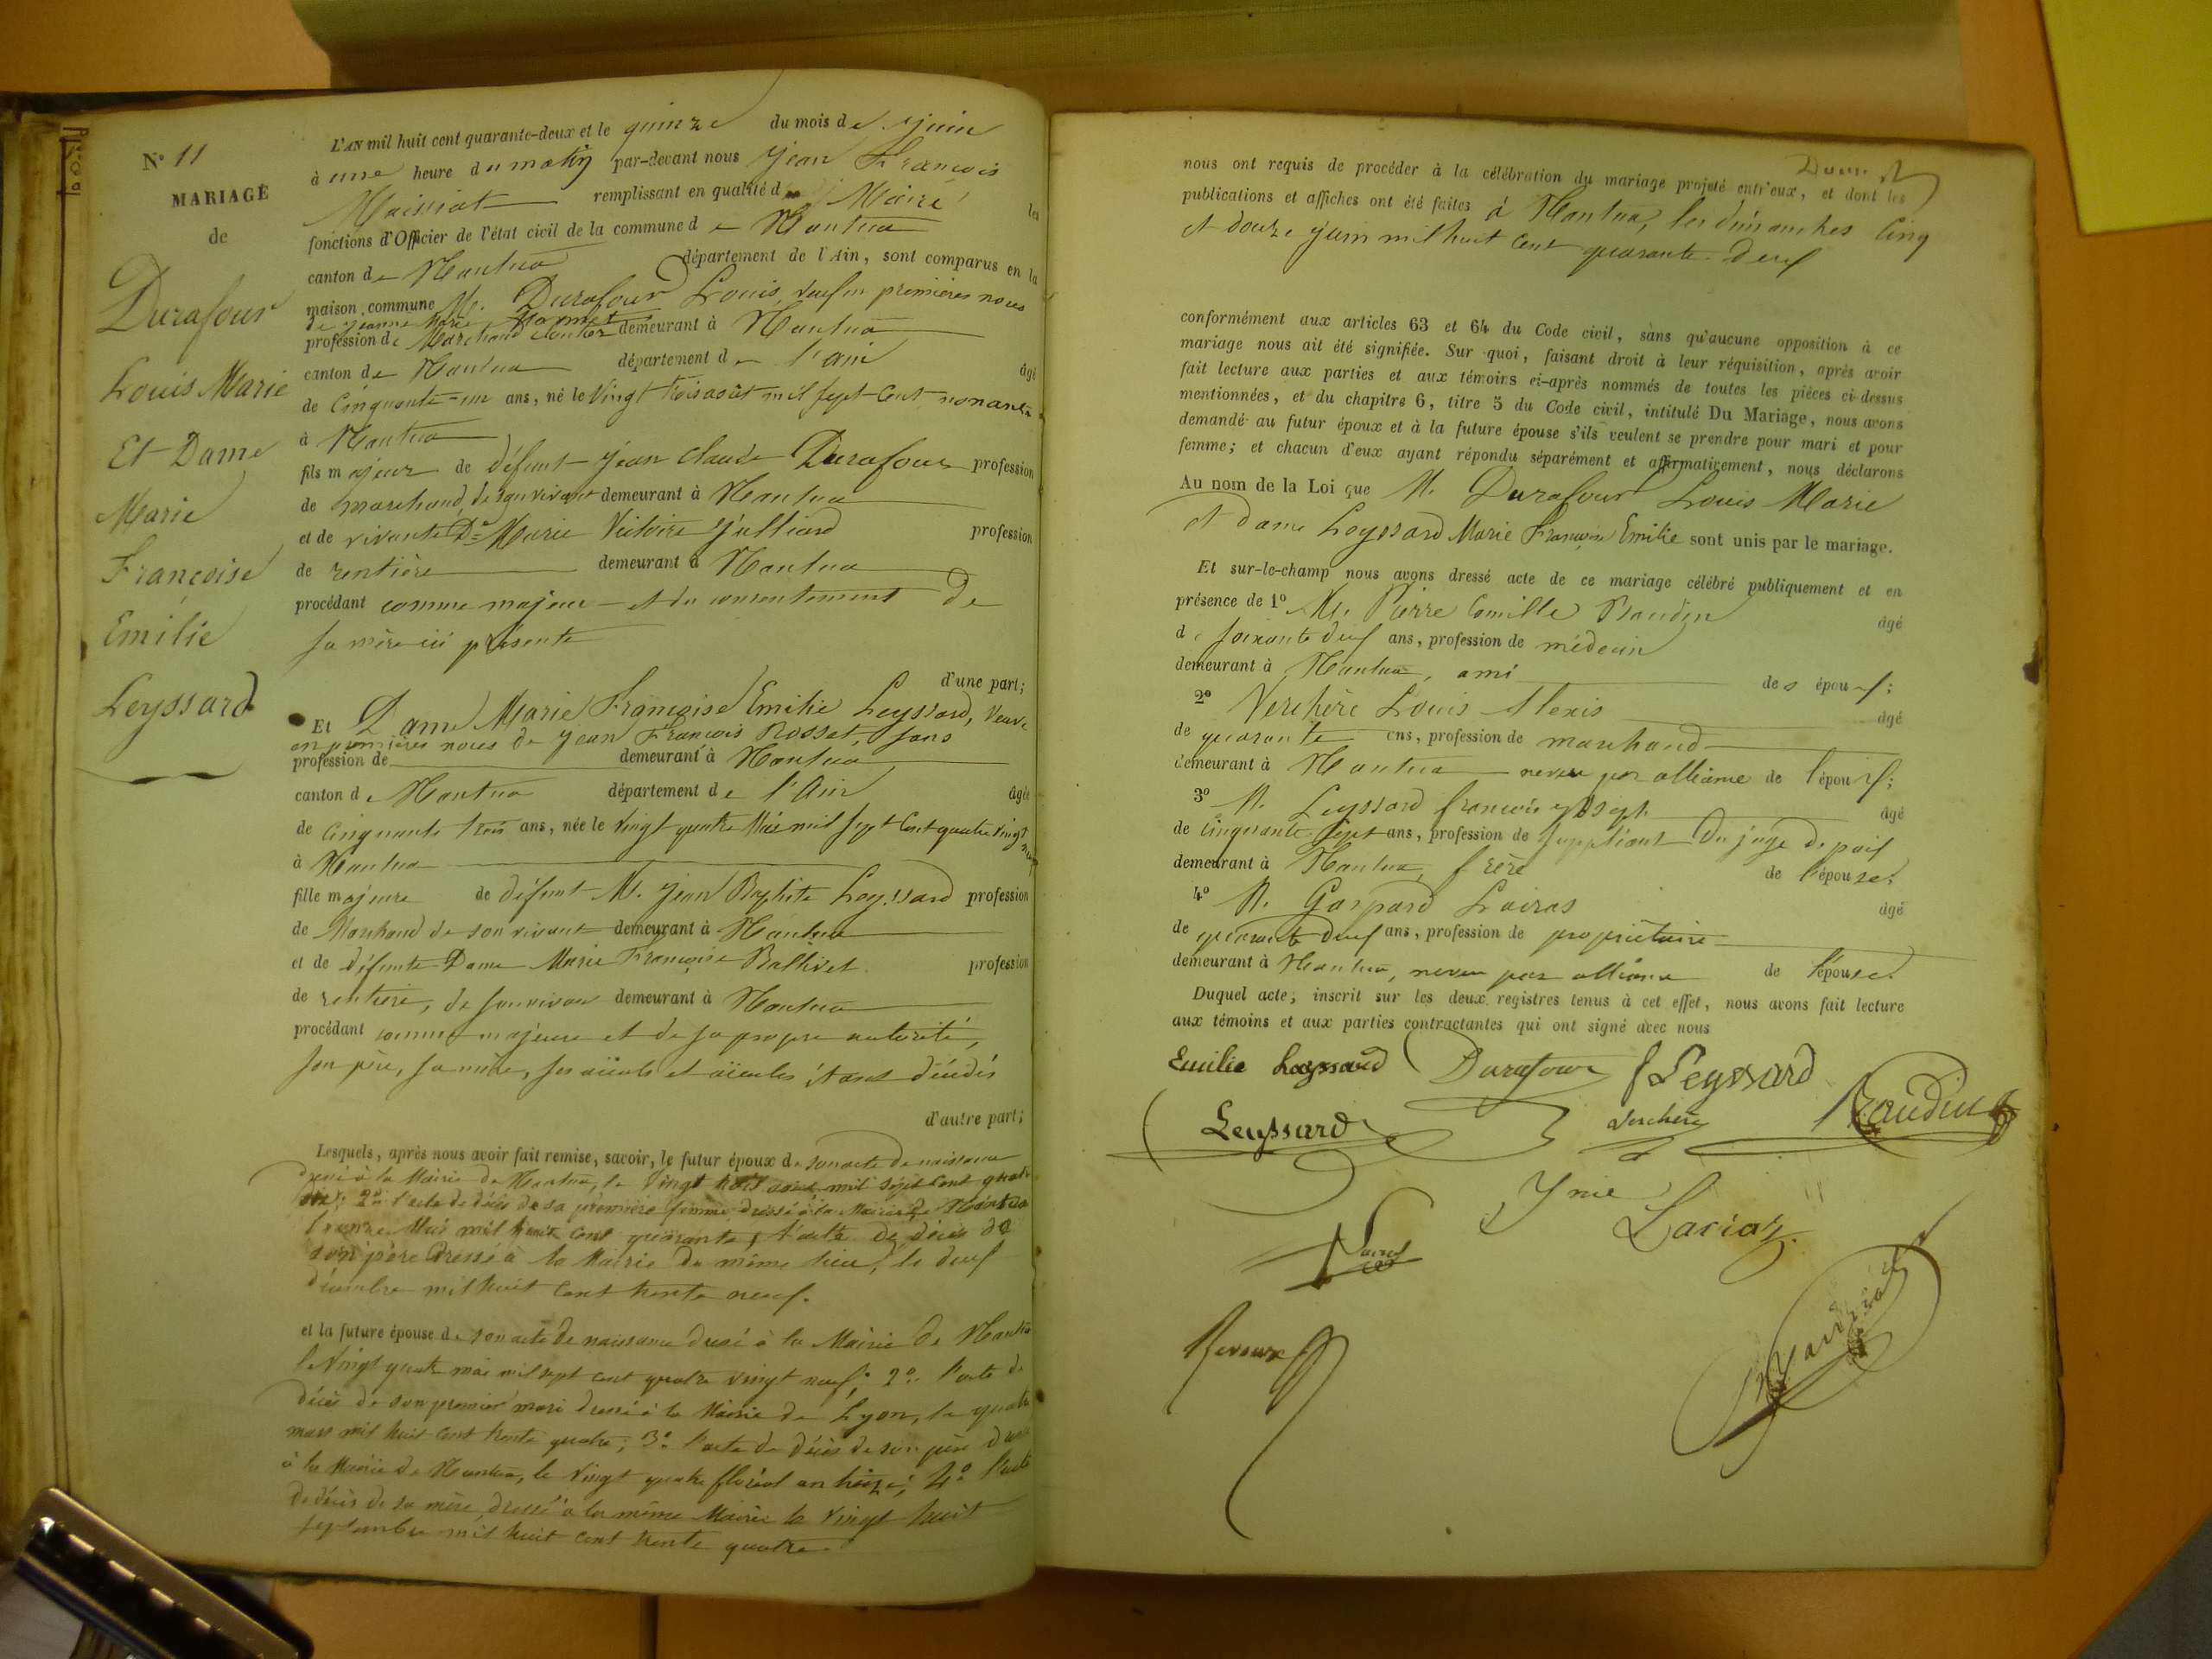 N° 11
MARIAGE
de
Durafour
Louis Marie
Et Dame
Marie
Françoise
Emilie
Leyssard
L'an mil huit cent quarante-deux et le quinze du mois de juin
à une heure du matin par-devant nous Jean François
Maissiat remplissant en qualité de Maire les
fonctions d'Officier de l'état civil de la commune de Nantua
canton de Nantua département de l'Ain, sont comparus en la
maison commune M. Durafour Louis, veuf en premières noces
de Jeanne Marie
profession de Marchand demeurant à Nantua
canton de Nantua département de l'ain âgé
de Cinquante-un ans, né le Vingt trois août mil sept cent nonante
à Nantua
fils majeur de défunt Jean Claude Durafour profession
de marchand, de son vivant demeurant à Nantua
et de vivante De Marie Victoire Julliard profession
de rentière demeurant à Nantua
procédant comme majeur et du consentement de
sa mère ici présente
d'une part;
Et Dame Marie Françoise Emilie Leyssard, veuve
en premières noces de Jean François Rosset, sans
profession de demeurant à Nantua
canton de Nantua département de l'Ain âgée
de Cinquante trois ans, née le Vingt quatre Mai mil sept cent quatre vingt neuf
à Nantua
fille majeure de défunt M. Jean Baptiste Leyssard profession
de Marchand de son vivant demeurant à Nantua
et de défunte Dame Marie Françoise Ballivet profession
de rentière, de son vivant demeurant à Nantua
procédant comme majeure et de sa propre autorité,
son père, sa mère, ses aïeuls et aïeules étant décédés
d'autre part;
Lesquels, après nous avoir fait remise, savoir, le futur époux de son acte de naissance
dressé à la Mairie de Nantua, le Vingt trois août mil sept cent quatre
dix; 2° l'acte de décès de sa première femme dressé à la Mairie de Nantua
Mai mil huit cent quarante, l'acte de décès de
son père dressé à la Mairie du même lieu, le deux
décembre mil huit cent trente neuf.
et la future épouse de son acte de naissance dressé à la Mairie de Nantua
le Vingt quatre mai mil sept cent quatre vingt neuf; 2° l'acte de
décès de son premier mari dressé à la Mairie de Lyon, le quatre
mars mil huit cent trente quatre; 3° l'acte de décès de son père dressé
à la Mairie de Nantua, le Vingt quatre floréal an treize; 4° l'acte
de décès de sa mère, dressé à la même Mairie le vingt huit
septembre mil huit cent trente quatre.
nous ont requis de procéder à la célébration du mariage projeté entr'eux, et dont les
publications et affiches ont été faites à Nantua, les dimanches cinq
et douze juin mil huit cent quarante-deux
conformément aux articles 63 et 64 du Code civil, sans qu'aucune opposition à ce
mariage nous ait été signifiée. Sur quoi, faisant droit à leur réquisition, après avoir
fait lecture aux parties et aux témoins ci-après nommés de toutes les pièces ci-dessus
mentionnées, et du chapitre 6, titre 5 du Code civil, intitulé Du Mariage, nous avons
demandé au futur époux et à la future épouse s'ils veulent se prendre pour mari et pour
femme; et chacun d'eux ayant répondu séparément et affirmativement, nous déclarons
Au nom de la Loi que M. Durafour Louis Marie
et dame Leyssard Marie Françoise Emilie sont unis par le mariage.
Et sur-le-champ nous avons dressé acte de ce mariage célébré publiquement et en
présence de 1° M. Pierre Camille Baudin âgé
de soixante deux ans, profession de médecin
demeurant à Nantua, ami des époux;
2° Verchère Louis Alexis âgé
de quarante ans, profession de marchand
demeurant à Nantua neveu par alliance de l'époux;
3° M. Leyssard François Joseph âgé
de cinquante-sept ans, profession de suppléant du juge de paix
demeurant à Nantua, frère de l'épouse.
4° M. Gaspard Lairas âgé
de quarante deux ans, profession de propriétaire
demeurant à Nantua, neveu par alliance de l'épouse.
Duquel acte, inscrit sur les deux registres tenus à cet effet, nous avons fait lecture
aux témoins et aux parties contractantes qui ont signé avec nous
Emilie Leyssard Durafour f Leyssard
Leyssard Verchère Baudin